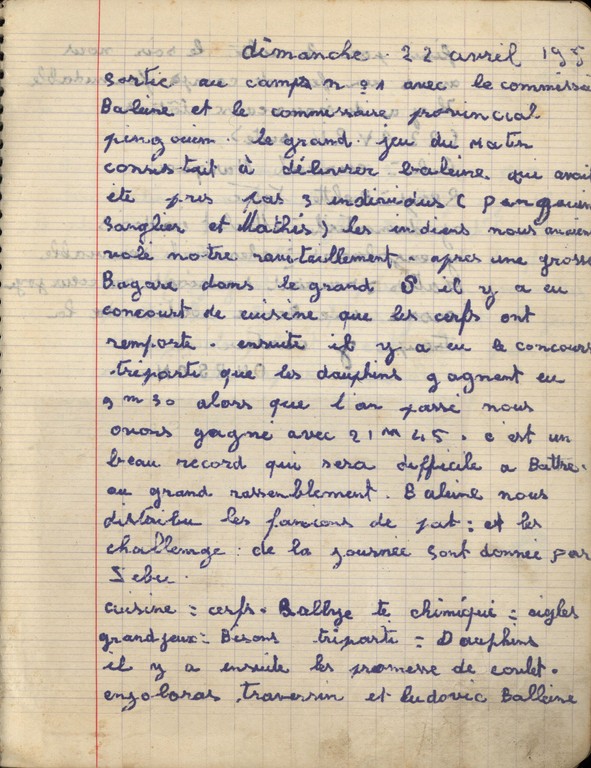 dimanche. 22 avril 195
Sortie au camp n°1 avec le commissai
Baleine et le commissaire provincial
pingouin. le grand jeu du Matin
consistait à délivrer baleine. qui avait
été pris pas 3 individus ( pengouin
Sanglier et Mathés) les indiens nous avaien
volé notre ravitaillement. apres une grosse
Bagare dans le grand S il y a eu
concourt de cuisine que les cerfs ont
remporte. ensuite il y a eu le concours
triparte que les dauphins gagnent eu
9m30 alors que l'an passé nous
avons gagné avec 21m45. c'est un
beau record qui sera difficile a Battre.
au grand rassemblement. Baleine nous
distribu les fanions de pat: et les
challenge: de la journée sont donnée par
Zebu.
cuisine = cerfs. Rallye te chimique = aigles
grand jeux = Bisons triparti = Dauphins
il y a ensuite les promesse de
enzoloras, traversin et ludovic Balleine